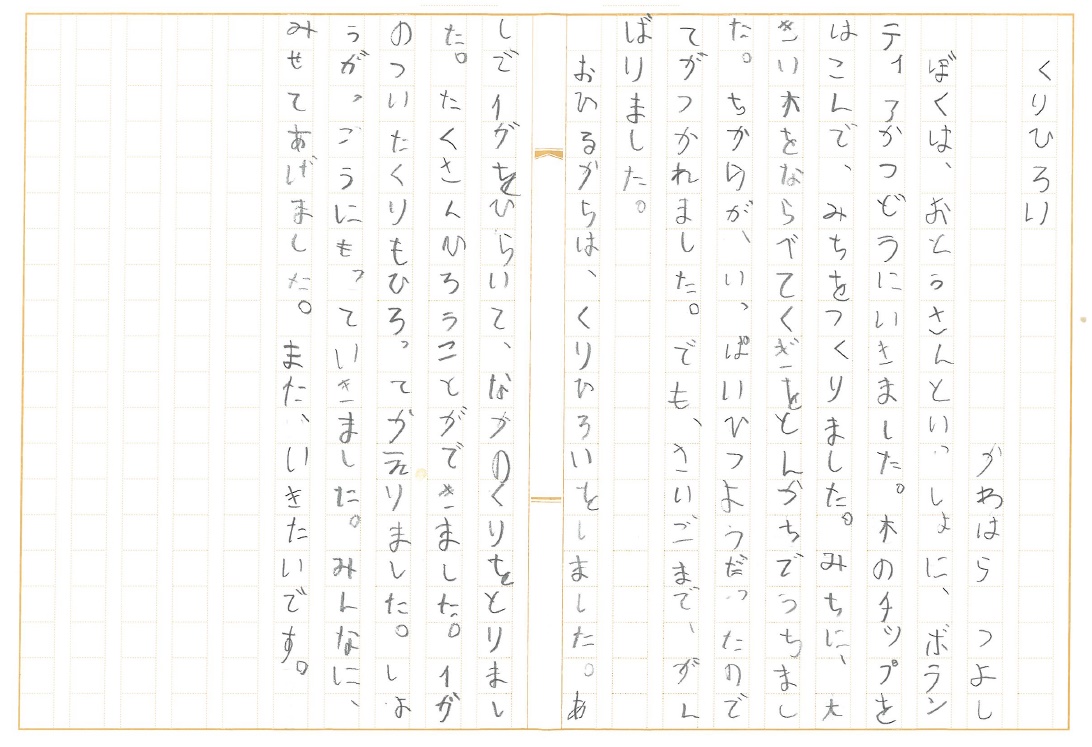 くりひろい
かわはら　つよし
ぼくは、おとうさんといっしょに、ボラン
ティアかつどうにいきました。木のチップを
はこんで、みちをつくりました。みちに、大
きい木をならべてくぎをとんかちでうちまし
た。ちからが、いっぱいひつようだったので
てがつかれました。でも、さいごまで、がん
ばりました。
おひるからは、くりひろいをしました。あ
しでイガをひらいて、なかのくりをとりまし
た。たくさんひろうことができました。イガ
のついたくりもひろってかえりました。しょ
うがっこうにもっていきました。みんなに、
みせてあげました。また、いきたいです。